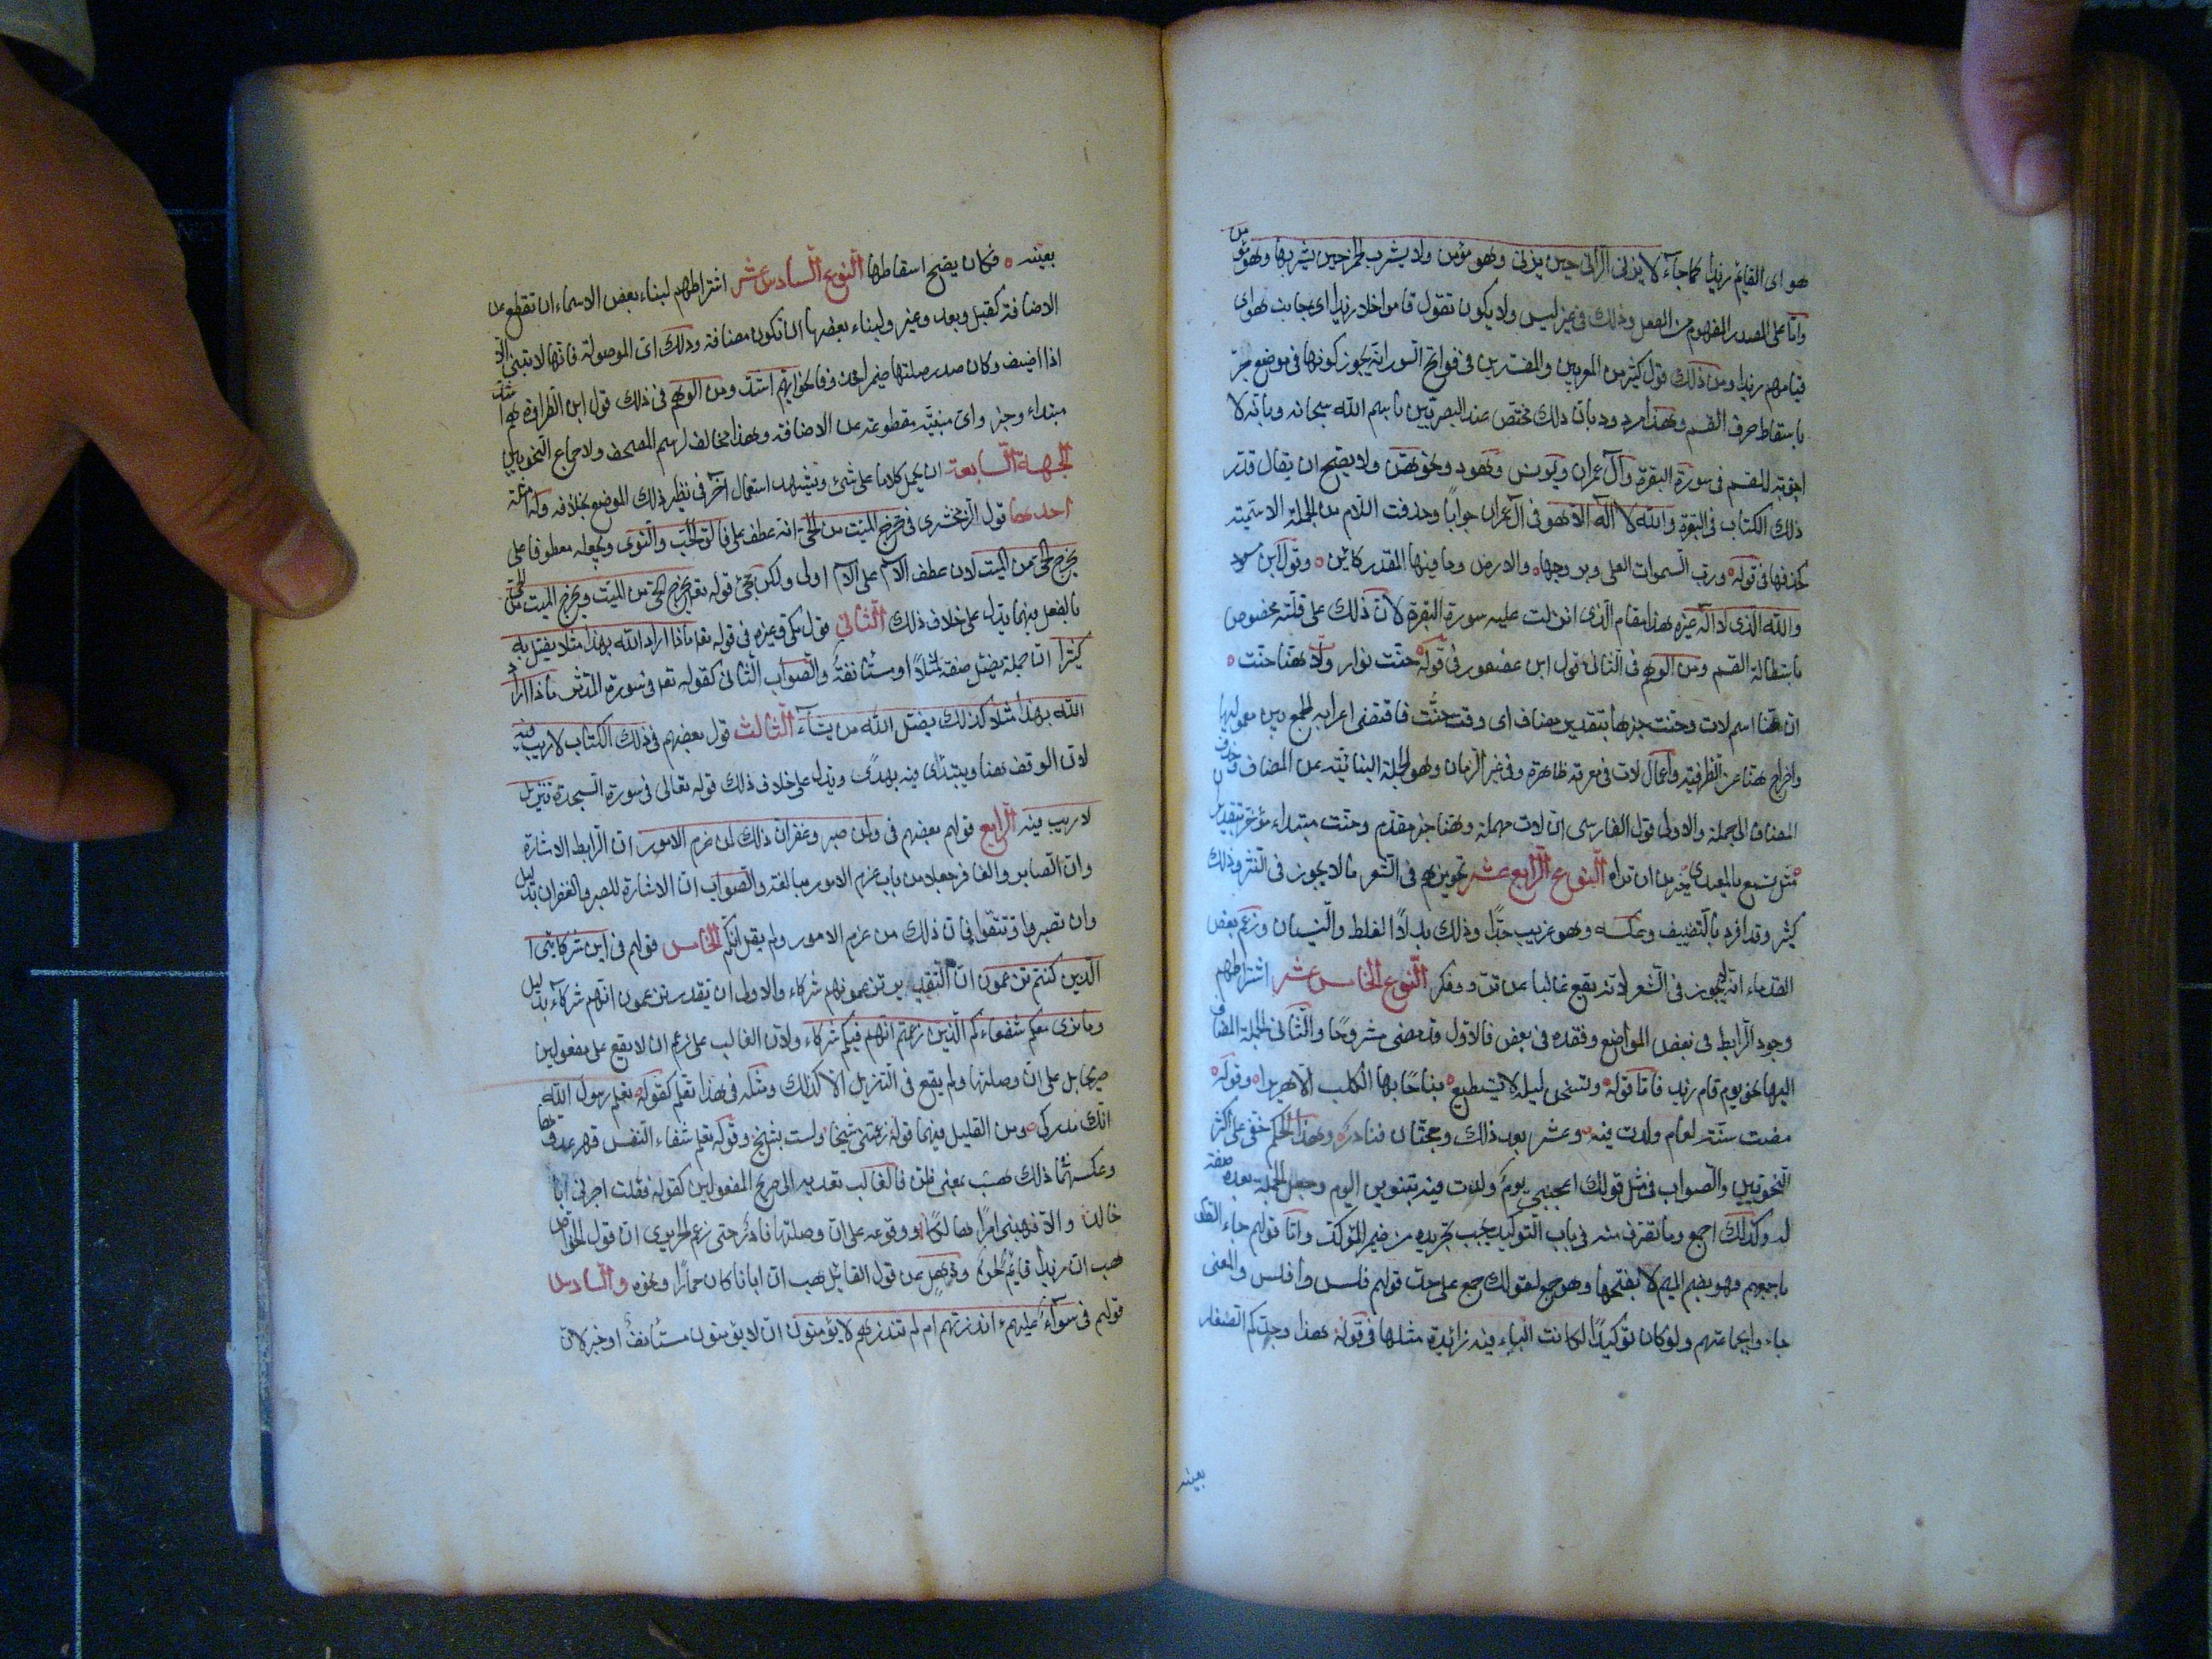 هو اى القايم زيدا كما جاء لا يزنى الزانى حين يزنى وهو مؤمن ولا يشرب الخمر حين يشربها وهو مؤمن
واما على المصدر المفهوم من الفعل وذلك فى غير ليس ولا يكون تقول قاموا خلا زيدا اى جانب هو اى
قيامهم زيدا ومن ذلك قول كثير من المعربين والمفسرين فى فواتح السور انه يجوز كونها فى موضع جر
باسقاط حرف القسم وهذا مردود بان ذلك مختص عند البصريين باسم الله سبحانه وبانه لا
اجوبة للقسم فى سورة البقرة وآل عمران ويونس وهود ونحوهن ولا يصح ان يقال قدر
ذلك الكتاب فى البقرة والله لا اله الا هو فى آل عمران جوابا وحذفت اللام من الجملة الاسمية
كحذفها فى قوله ورب السموات العلى وبروجها والارض وما فيها المقدر كاين وقول ابن مسعود
والله الذى لا اله غيره هذا مقام الذى انزلت عليه سورة البقرة لان ذلك على قلته مخصوص
باستطالة القسم ومن الوهم فى الثانى قول ابن عصفور فى قوله حنت نوار ولات هنا حنت
ان هنا اسم لات وحنت خبرها بتقدير مضاف اى وقت حنت فاقتضى اعرابه الجمع بين معموليها
واخراج هنا عن الظرفية واعمال لات فى معرفة ظاهرة وفى غير الزمان وهو الجملة النائبة عن المضاف وحذف
المضاف الى جملة والاولى قول الفارسى ان لات مهملة وهنا خبر مقدم وحنت مبتداء مؤخر بتقدير ان
مثل تسمع بالمعيدى خير من ان تراه النوع الرابع عشر تجويزهم فى الشعر ما لا يجوز فى النثر وذلك
كثير وقد افرد بالتصنيف وعكسه وهو غريب جدا وذلك بدلا الغلط والنسيان وزعم بعض
القدماء انه لا يجوز فى الشعر لانه يقع غالبا عن ترو وفكر النوع الخامس عشر اشتراطهم
وجود الرابط فى بعض المواضع وفقده فى بعض فالاول قد مضى مشروحا والثانى الجملة المضاف
اليها نحو يوم قام زيد فاما قوله وتسخن ليلة لا يستطيع نباحا بها الكلب الا هريرا وقوله
مضت سنة لعام ولدت فيه وعشر بعد ذلك وحجتان فنادر وهذا الحكم خفى على اكثر
النحويين والصواب فى مثل قولك اعجبنى يوم ولدت فيه بتنوين اليوم وجعل الجملة بعده صفة
له وكذلك اجمع وما تصرف منه فى باب التوكيد يجب تجريده من ضمير المؤكد واما قولهم جاء القوم
باجمعهم فهو بضم الميم لا بفتحها وهو جمع لقولك جمع على حد قولهم فلس وافلس والمعنى
جاءوا بجماعتهم ولو كان توكيدا لكانت الباء فيه زائدة مثلها فى قوله هذا وجدكم الصغار
بعينه
بعينه فكان يصح اسقاطها النوع السادس عشر اشتراطهم لبناء بعض الاسماء ان تقطع عن
الاضافة كقبل وبعد وغير ولبناء بعضها ان تكون مضافة وذلك اى الموصولة فانها لا تبنى الا
اذا اضيف وكان صدر صلتها ضميرا محذوفا نحو ايهم اشد ومن الوهم فى ذلك قول ابن الطراوة هم اشد
مبتداء وخبر واى مبنية مقطوعة عن الاضافة وهذا مخالف لرسم المصحف ولاجماع النحويين
الجهة السابعة ان يحمل كلاما على شئ ويشهد استعمال آخر فى نظير ذلك الموضع بخلافه وله امثلة
احدها قول الزمخشرى فى مخرج الميت من الحى انه عطف على فالق الحب والنوى ولم يجعله معطوفا على
يخرج الحى من الميت لان عطف الاسم على الاسم اولى ولكن مجئ قوله تعالى يخرج الحى من الميت ويخرج الميت من الحى
بالفعل فيهما يدل على خلاف ذلك الثانى قول مكى وغيره فى قوله تعالى ماذا اراد الله بهذا مثلا يضل به
كثيرا ان جملة يضل صفة لمثلا او مستأنفة والصواب الثانى كقوله تعالى فى سورة المدثر ماذا اراد
الله بهذا مثلا كذلك يضل الله من يشاء الثالث قول بعضهم فى ذلك الكتاب لا ريب فيه
لان الوقف هنا ويبتداى فيه بهدى ويدل على خلاف ذلك قوله تعالى فى سورة السجدة تنزيل
لا ريب فيه الرابع قولهم بعضهم فى ولمن صبر وغفر ان ذلك لمن عزم الامور ان الرابط الاشارة
وان الصابر والغافر جعلا من باب عزم الامور مبالغة والصواب ان الاشارة للصبر والغفران بدليل
وان تصبروا وتتقوا فان ذلك من عزم الامور ولم يقل انكم الخامس قولهم فى اين شركائى ا
الذين كنتم تزعمون ان التقدير تزعمونهم شركاء والاولى ان يقدر تزعمون انهم شركاء بدليل
وما نرى معكم شفعاءكم الذين زعمتم انهم فيكم شركاء ولان الغالب على زعم ان لا يقع على مفعولين
صريحا بل على ان وصلتها ولم يقع فى التنزيل الا كذلك ومثله فى هذا تعلم كقوله تعلم رسول الله
انك مدركى ومن القليل فيهما قوله زعمتنى شيخا ولست بشيخ وقوله تعلم شفاء النفس قهر عدوها
وعكسهما ذلك هب بمعنى ظن فالغالب تعديه الى صريح المفعولين كقوله فقلت اجرنى ابا
خالد والا فهبنى امرا هالكا ووقوعه على ان وصلتها نادر حتى زعم الحريرى ان قول الخواص
هب ان زيدا قايم لحن وذهل عن قول القائل هب ان ابانا كان حمارا ونحوه والسادس
قولهم فى سواء عليهم ءانذرتهم ام لم تنذرهم لا يؤمنون ان لا يؤمنون مستأنف او خبر لان